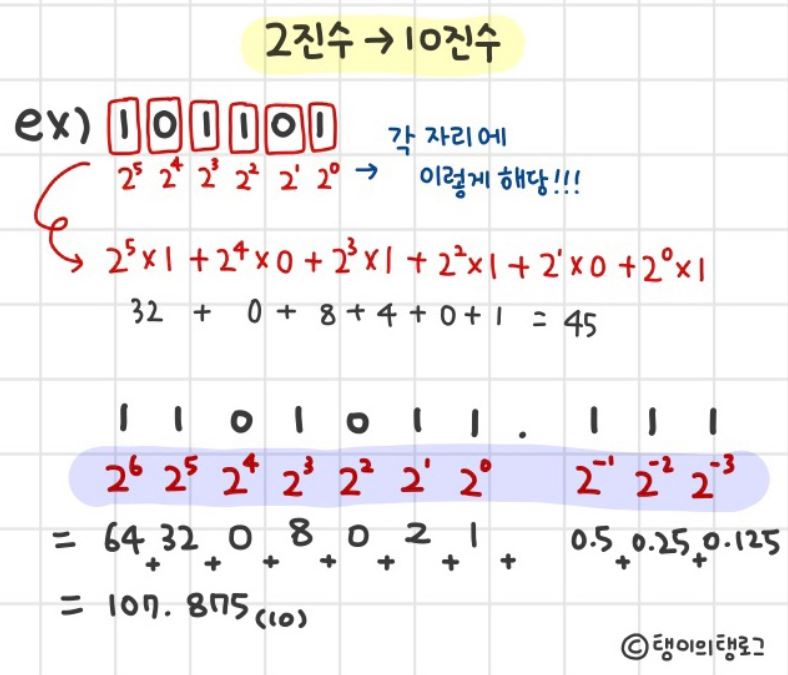 2진수 → 10진수
ex) 1 0 1 1 0 1
각 자리에
2⁵ 2⁴ 2³ 2² 2¹ 2⁰ → 이렇게 해당!!!
2⁵×1 + 2⁴×0 + 2³×1 + 2²×1 + 2¹×0 + 2⁰×1
32 + 0 + 8 + 4 + 0 + 1 = 45
1 1 0 1 0 1 1 . 1 1 1
2⁶ 2⁵ 2⁴ 2³ 2² 2¹ 2⁰ 2⁻¹ 2⁻² 2⁻³
= 64 + 32 + 0 + 8 + 0 + 2 + 1 + 0.5 + 0.25 + 0.125
= 107.875(10)
©탱이의탱로그